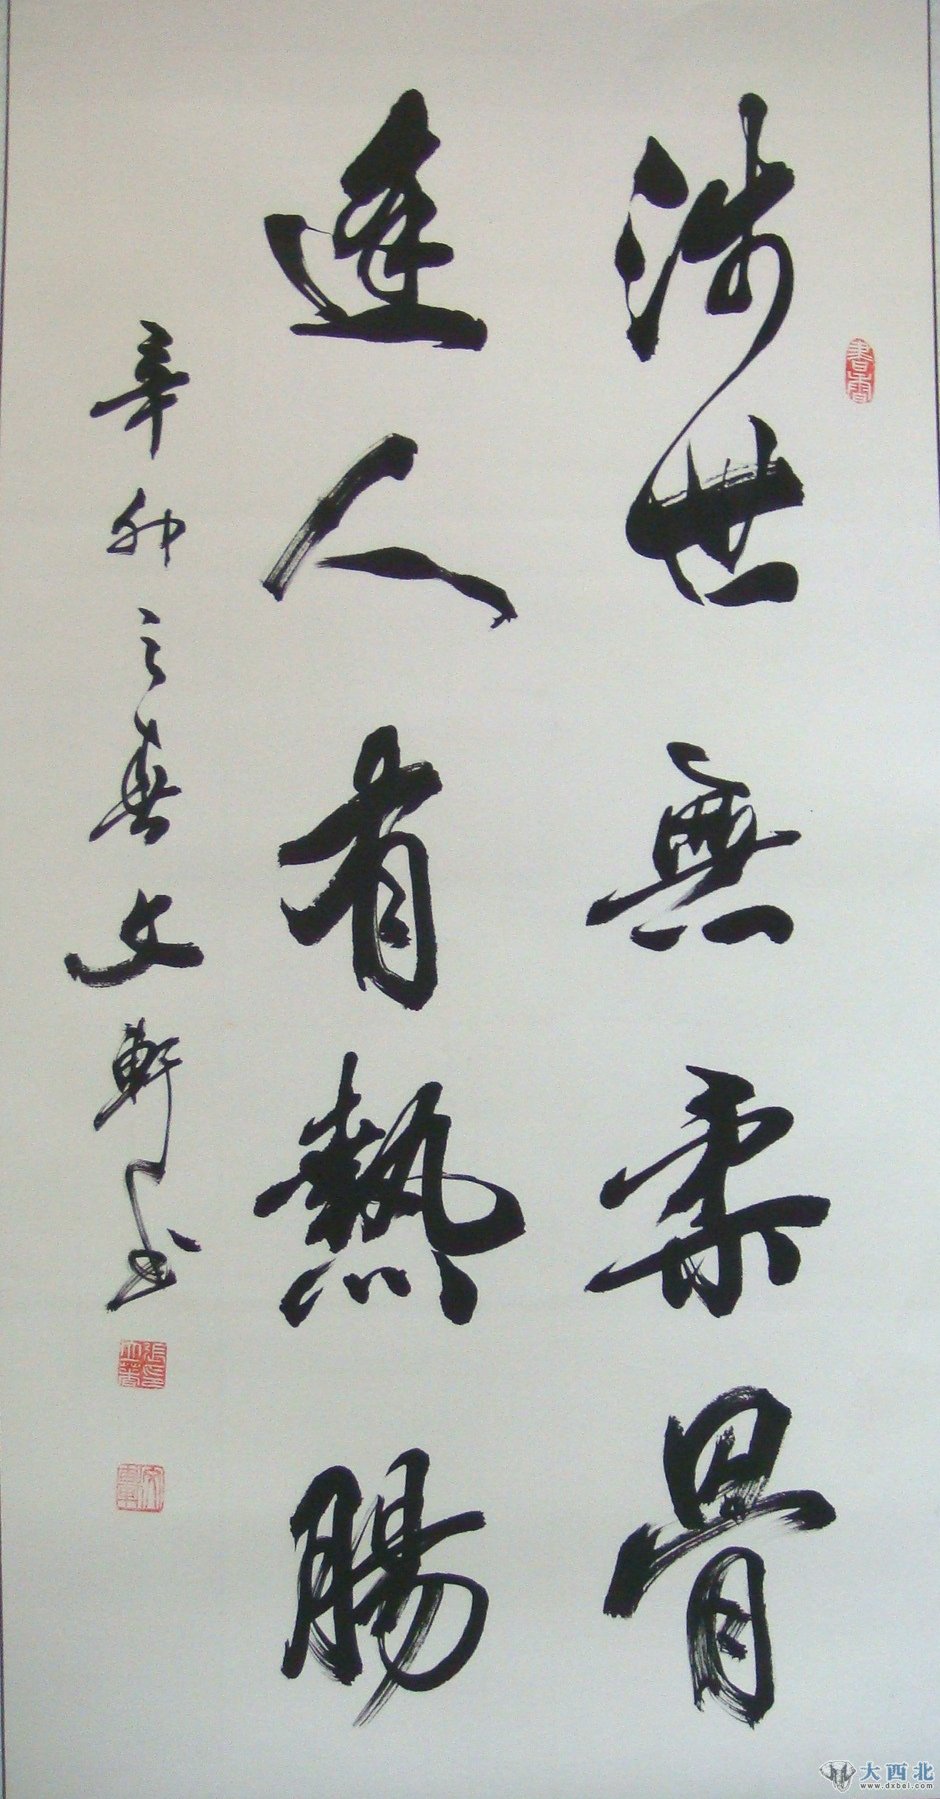 涉世無柔骨
逢人有熱腸
辛卯之春文軒書
書香
大西北
www.dxbei.com